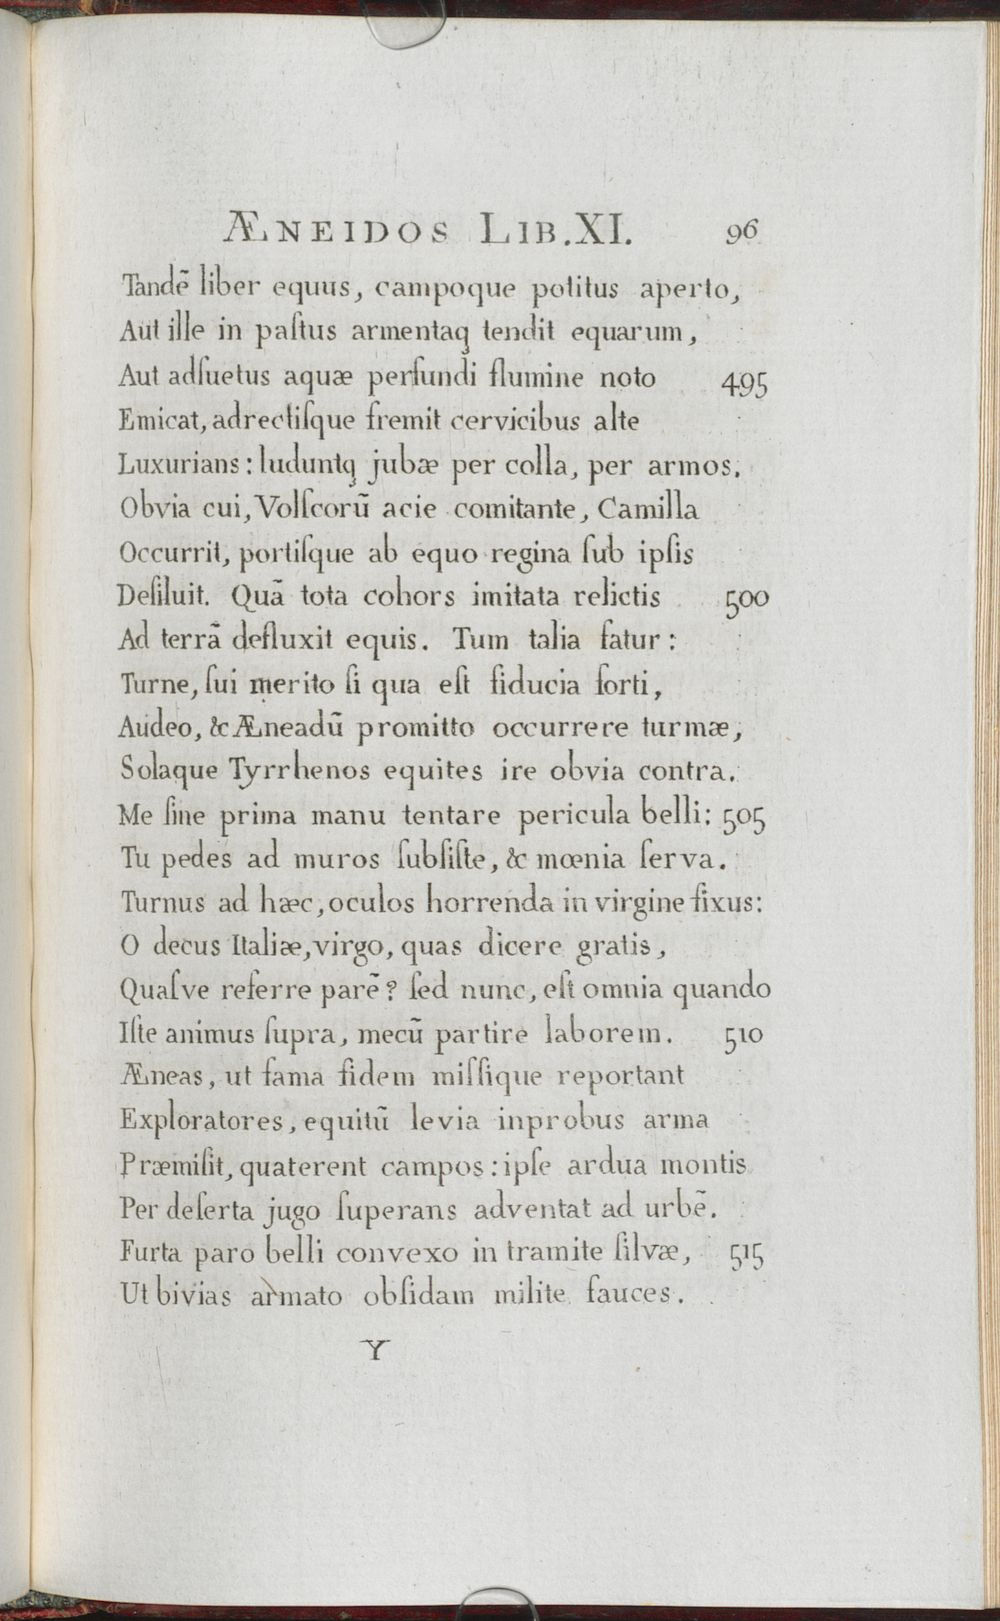 ÆNEIDOS LIB. XI. 96
Tandē liber equus, campoque potitus aperto,
Aut ille in paſtus armentaq; tendit equarum,
Aut adſuetus aquæ perfundi flumine noto 495
Emicat, adrectiſque fremit cervicibus alte
Luxurians: luduntq; jubæ per colla, per armos.
Obvia cui, Volſcorū acie comitante, Camilla
Occurrit, portiſque ab equo regina ſub ipſis
Deſiluit. Quā tota cohors imitata relictis 500
Ad terrā defluxit equis. Tum talia fatur:
Turne, ſui merito ſi qua eſt fiducia forti,
Audeo, & Æneadū promitto occurrere turmæ,
Solaque Tyrrhenos equites ire obvia contra.
Me ſine prima manu tentare pericula belli: 505
Tu pedes ad muros ſubſiſte, & mœnia ſerva.
Turnus ad hæc, oculos horrenda in virgine fixus:
O decus Italiæ, virgo, quas dicere gratis,
Quaſve referre parē? ſed nunc, eſt omnia quando
Iſte animus ſupra, mecū partire laborem. 510
Æneas, ut fama fidem miſſique reportant
Exploratores, equitū levia inprobus arma
Præmiſit, quaterent campos: ipſe ardua montis
Per deſerta jugo ſuperans adventat ad urbē.
Furta paro belli convexo in tramite ſilvæ, 515
Ut bivias armato obſidam milite fauces.
Y